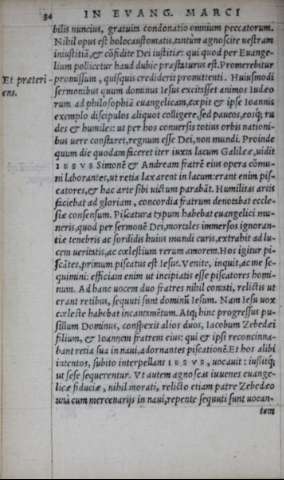 34 IN EVANG. MARCI
bilis nuncius, gratuita condonatio omnium peccatorum.
Nihil opus est holocaustomatis, tantùm agnoscite vestram
iniustitiã, & cõfidite Dei iustitiæ: qui quod per Euange-
lium pollicetur haud dubiè præstaturus est. Promerebitur
Et præteri- promissum, quisquis crediderit promittenti. Huiusmodi
ens. sermonibus quum dominus Iesus excitasset animos Iudæo
rum ad philosophiã euangelicam, cœpit & ipse Ioannis
exemplo discipulos aliquot colligere, sed paucos, eosq; ru
des & humiles: ut per hos conuersis totius orbis nationi-
bus uere constaret, regnum esse Dei, non mundi. Proinde
quum die quodam faceret iter iuxta lacum Galilææ, uidit
IESVS Simonẽ & Andream fratrẽ eius opera cõmu-
ni laborantes, ut retia laxarent in lacum: erant enim pis-
catores, & hac arte sibi uictum parabãt. Humilitas artis
faciebat ad gloriam, concordia fratrum denotabat eccle-
siæ consensum. Piscatura typum habebat euangelici mu-
neris, quod per sermonẽ Dei, mortales immersos ignoran-
tiæ tenebris ac sordidis huius mundi curis, extrahit ad lu-
cem ueritatis, ac cœlestium rerum amorem. Hos igitur pi-
scãtes, primum piscatus est Iesus. Venite, inquit, ac me se-
quimini: efficiam enim ut incipiatis esse piscatores homi-
num. Ad hanc uocem duo fratres nihil conati, relictis ut
erant retibus, sequuti sunt dominũ Iesum. Nam Iesu uox
cœleste habebat incantamẽtum. Atq; hinc progressus pu-
sillum Dominus, conspexit alios duos, Iacobum Zebedæi
filium, & Ioannem fratrem eius: qui & ipsi reconcinna-
bant retia sua in naui, adornantes piscationẽ. Et hos alibi
intentos, subito interpellans IESVS, uocauit: iussitq;
ut sese sequerentur. Vt autem agnoscas iuuenes euange-
licæ fiduciæ, nihil morati, relicto etiam patre Zebedæo
unà cum mercenarijs in naui, repente sequuti sunt uocan-
tem